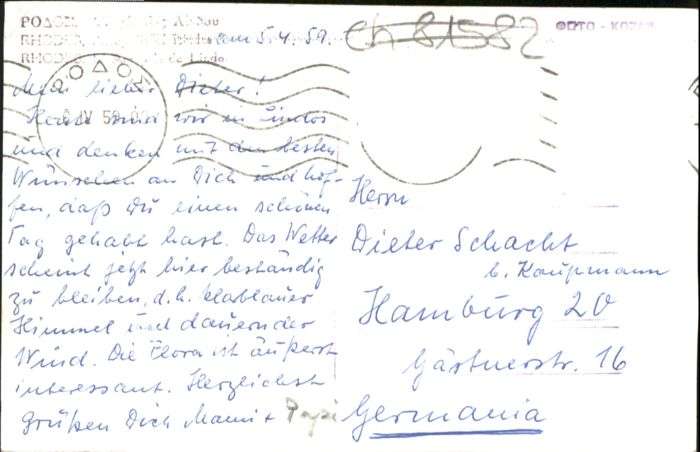 RHODES
am 5.4.59.
Ch 81582
ΦΩΤΟ -
ΡΟΔΟΣ
IV 59
Mein lieber Dieter!
Heute sind wir in Lindos
und denken mit den besten
Wünschen an Dich und hof-
fen, daß Du einen schönen
Tag gehabt hast. Das Wetter
scheint jetzt hier beständig
zu bleiben, d.h. klarblauer
Himmel und dauernder
Wind. Die Flora ist äußerst
interessant. Herzlichst
grüßen Dich Mami + Papi
Herrn
Dieter Schacht
b. Kaufmann
Hamburg 20
Gärtnerstr. 16
Germania